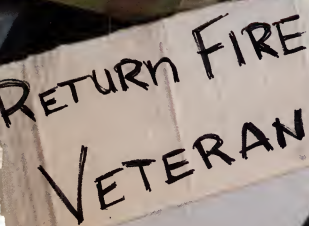 RETURN FIRE
VETERAN